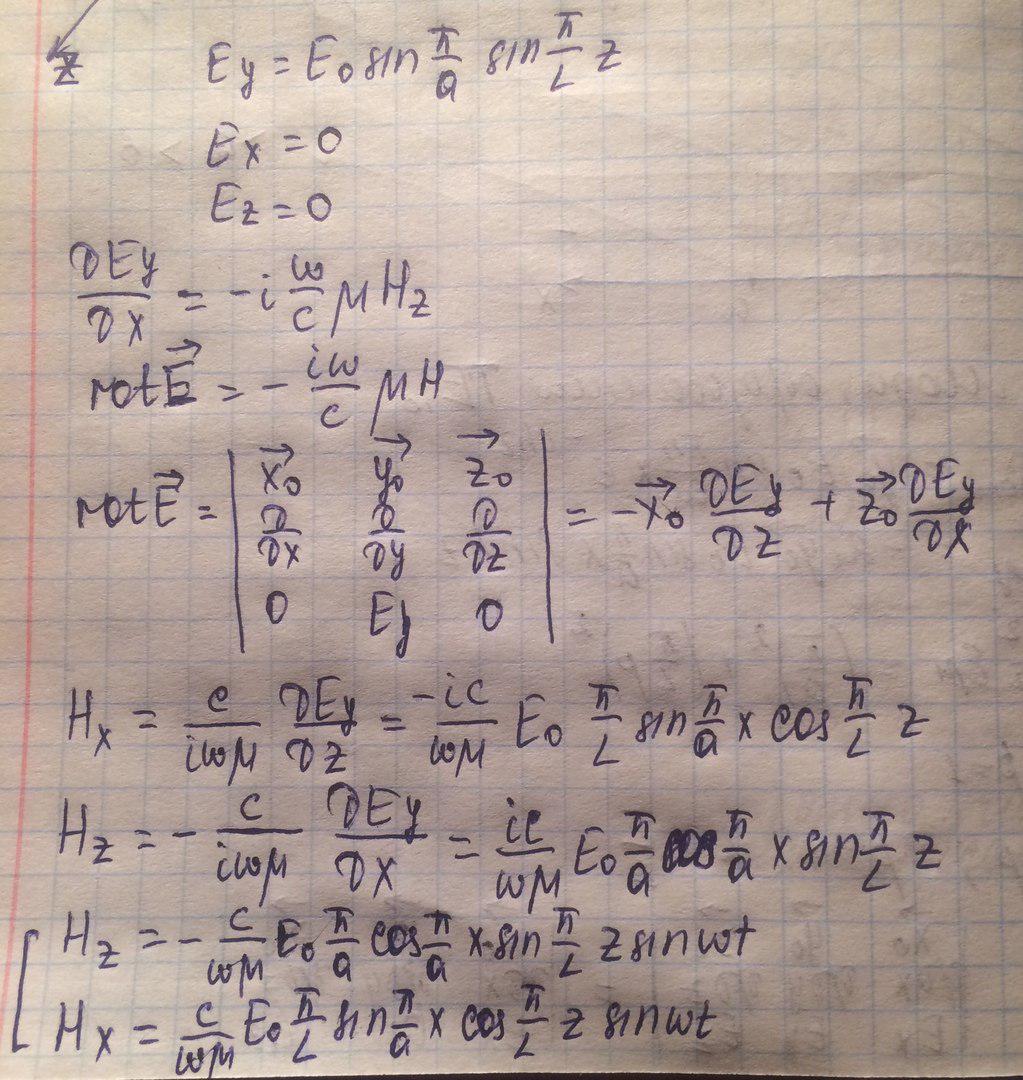 z E_y = E_0 sin π/a sin π/L z
E_x = 0
E_z = 0
∂E_y/∂x = -i ω/c μ H_z
rot E⃗ = - iω/c μH
rot E⃗ = | x⃗_0 y⃗_0 z⃗_0 |
| ∂/∂x ∂/∂y ∂/∂z | = -x⃗_0 ∂E_y/∂z + z⃗_0 ∂E_y/∂x
| 0 E_y 0 |
H_x = c/iωμ ∂E_y/∂z = -ic/ωμ E_0 π/L sin π/a x cos π/L z
H_z = - c/iωμ ∂E_y/∂x = ic/ωμ E_0 π/a cos π/a x sin π/L z
H_z = - c/ωμ E_0 π/a cos π/a x · sin π/L z sin ωt
H_x = c/ωμ E_0 π/L sin π/a x cos π/L z sin ωt